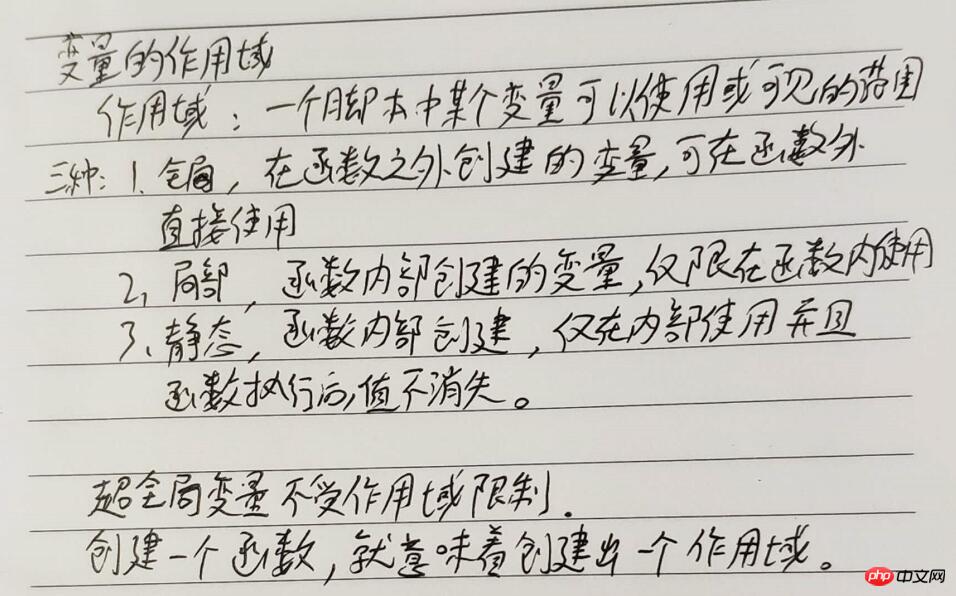 变量的作用域
作用域：一个脚本中某个变量可以使用或可见的范围
三种：1、全局，在函数之外创建的变量，可在函数外
直接使用
2、局部，函数内部创建的变量，仅限在函数内使用
3、静态，函数内部创建，仅在内部使用并且
函数执行后，值不消失。
超全局变量不受作用域限制.
创建一个函数，就意味着创建出一个作用域。
php中文网